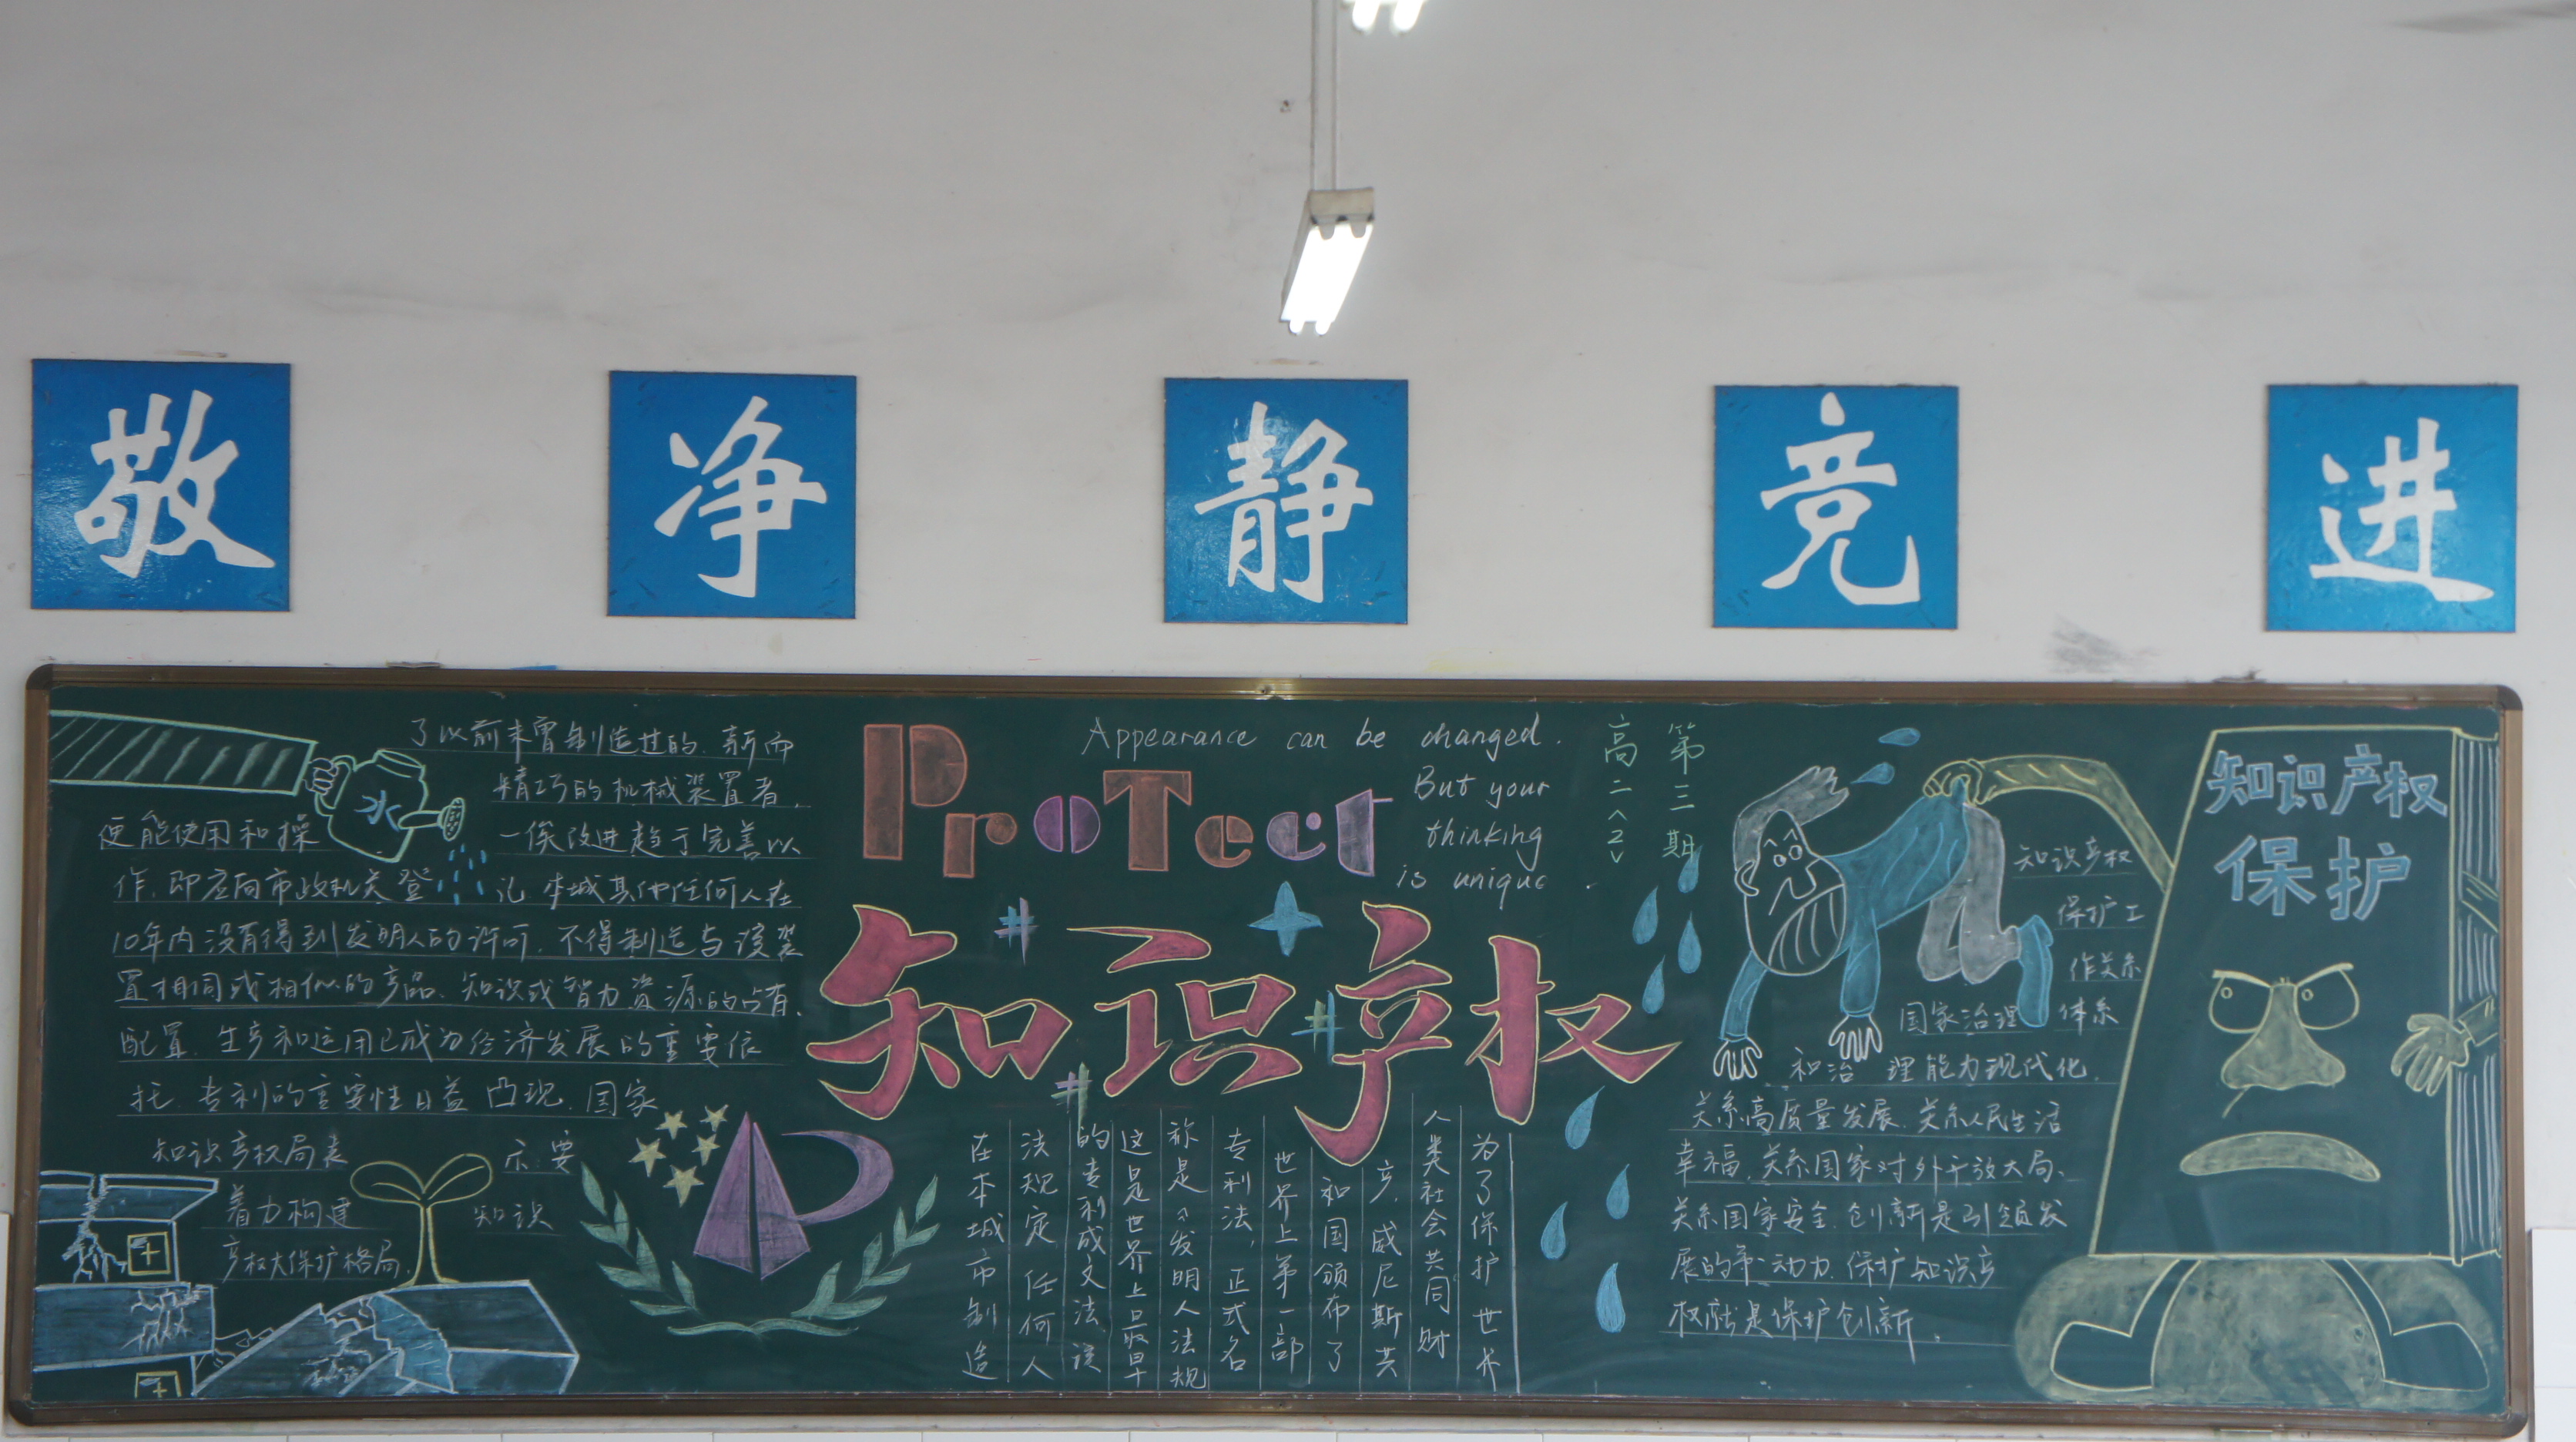 敬 净 静 竞 进
了以前未曾制造过的、新而
精巧的机械装置者，
便能使用和操
水
一俟改进趋于完善以
作，即应向市政机关登
记 本城其他任何人在
10年内没有得到发明人的许可，不得制造与该装
置相同或相似的产品。知识或智力资源的占有、
配置、生产和运用已成为经济发展的重要依
托，专利的重要性日益凸现，国家
知识产权局表
示：要
着力构建
知识
产权大保护格局。
ProTect
Appearance can be changed.
But your
thinking
is unique .
第三期
高二<2>
知识产权
为了保护世界
人类社会共同财
产，威尼斯共
和国颁布了
世界上第一部
专利法，正式名
称是《发明人法规
这是世界上最早
的专利成文法，该
法规定任何人
在本城市制造
知识产权
保护工
作关系
国家治理 体系
和治 理能力现代化，
关系高质量发展，关系人民生活
幸福，关系国家对外开放大局，
关系国家安全。创新是引领发
展的第一动力，保护知识产
权就是保护创新。
知识产权
保护